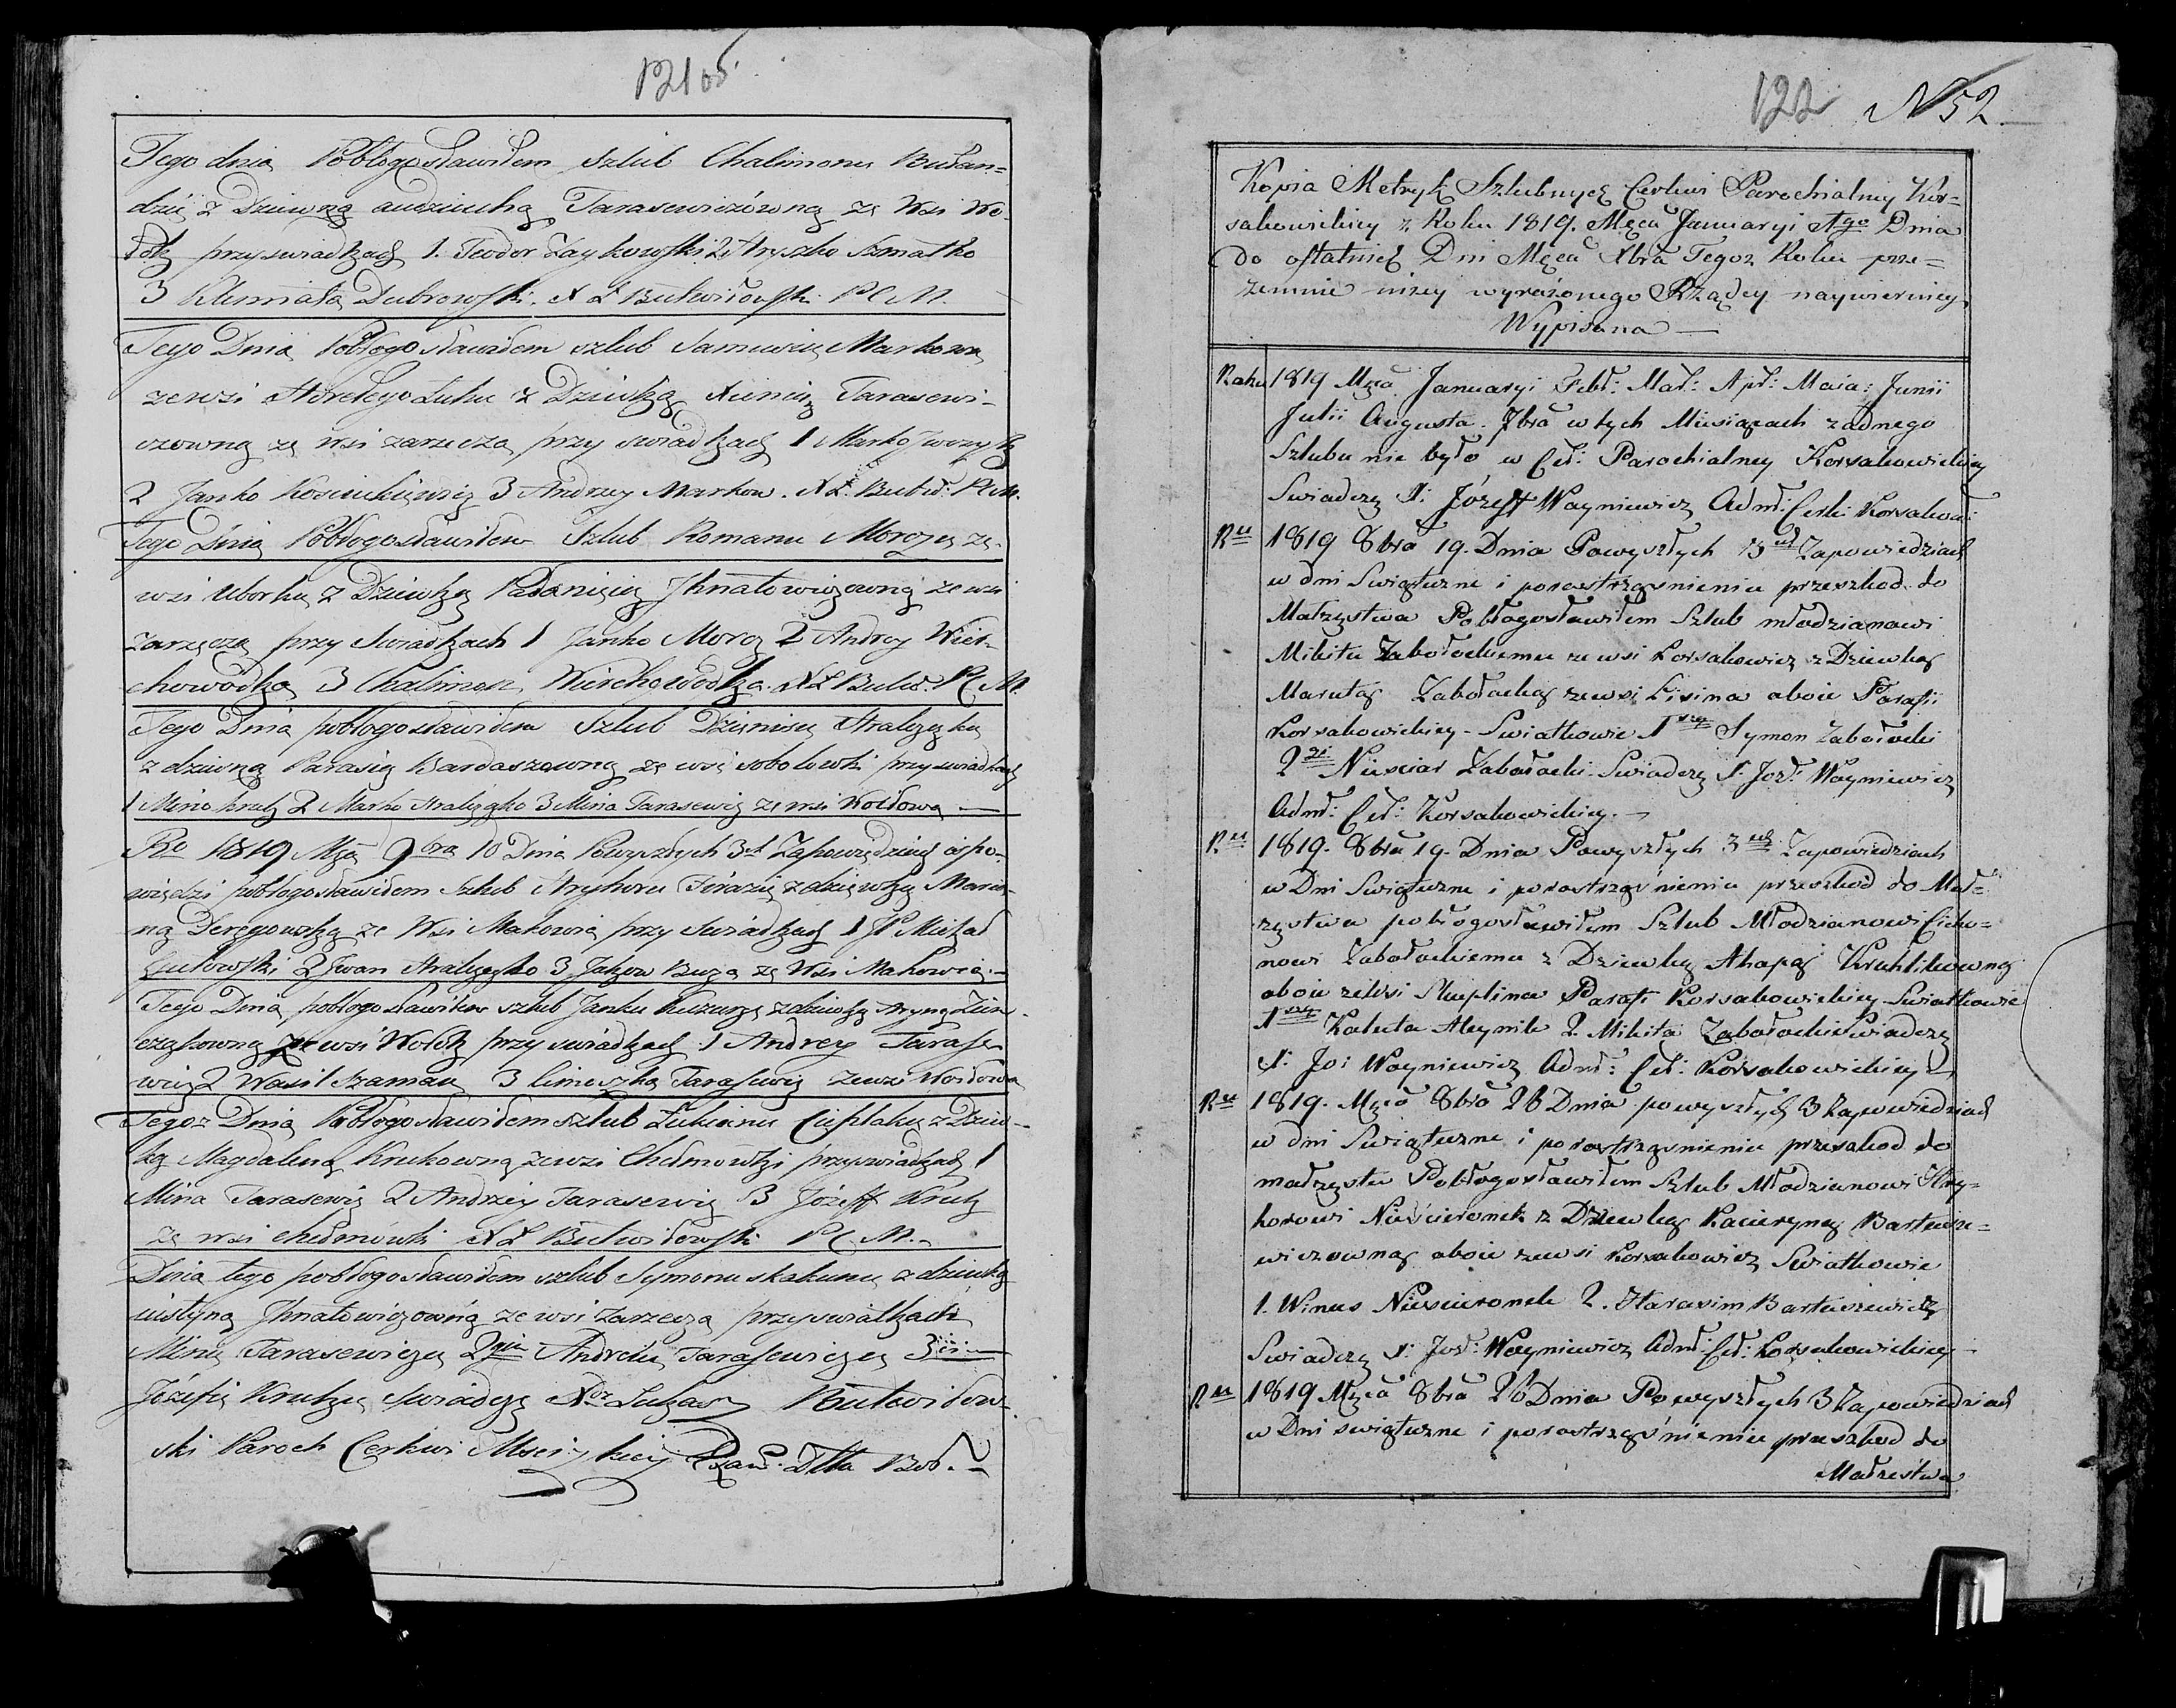 121 05.
Tego dnia Pobłogosławiłem szlub Chalimonu Bułan=
dzie z Dziewną audziuchą Tarasewiczówną ze Wsi Wo-
przy swiadkach 1. Teodor Zaykowski 2 Hryszko Szmatko
3 Dubrowski. X Ł Butwiłowski P C M.
Tego Dnia Pobłogosławiłem szlub Markowu
zewsi Horełego Łuhu z Dziewką Xienią Tarasewi-
czowną ze wsi zarzecza przy swiadkach 1 Marko
2 Janko 3 Andrzey Markow. X Ł. Butwił: P C M.
Tego Dnia Pobłogosławiłem Szlub Romanu Morozu ze
wsi Uborku z Dziewką Pałaniją Jhnatowiczowną ze wsi
zarzecza przy Swiadkach 1 Janko Moroz 2 Andrey Wier-
chowodka 3 Chalimon Wierchowodka. X Ł Butwił. P C M.
Tego Dnia pobłogosławiłem Szlub Dzienisu Hralczyku
z dziewną Parasią Bardaszowną ze wsi sobolowki przy swiadkach
1 Mina kruk 2 Marko 3 Mina Tarasewicz ze wsi Wołdowa —
Ro 1819 Mca 9bra 10 Dnia Powyszłych 3ch Zapowiedziach
pobłogosławiłem szlub Hryhoru z dziewką Maria-
ną Deregowską ze Wsi Makowia przy swiadkach 1 JP Michał
Gutowski 2 Jwan 3 Jakow Buza ze Wsi Makowia. —
Tego Dnia pobłogosławiłem szlub Janku z dziewką Aryną
ze wsi przy swiadkach 1 Andrey Tarase-
wicz 2 Wasil Szaman 3 Tarasewicz zewsi Wołdowa
Tegoz Dnia Pobłogosławiłem szlub Łukianu Cieplaku z Dziew-
ką Magdaleną Krukowną zewsi Chełmowki przy swiadkach 1
Mina Tarasewicz 2 Andrzey Tarasewicz 3 Józeff Kruk
ze wsi chełmówki X Ł Butwiłowski P C M. —
Dnia tego pobłogosławiłem szlub Symonu skakunu z dziewką
iustyną Jhnatowiczowną ze wsi zarzecza przy swiatkach
Miniu Tarasewiczu 2gim Andreiu Tarasewiczu 3im
Józefie Krukzu Swiadczę Xdz Łukasz Butwiłow-
ski Paroch Cerkwi
122 N 52.
Kopia Metryk Szlubnych Cerkwi Parochialney Kor=
sakowickiey z Roku 1819. Męca Januaryi 1go Dnia
do ostatnich Dni Męca Xbra Tegoz Roku prze=
zemnie nizey wyrażonego Rządcy naywierniey
Wypisana —
Roku 1819 Mca Januaryi Febr: Mar: Apr: Maia: Junii
Julii Augusta. 7bra w tych Miesiącach żadnego
Szlubu nie było w Cer: Parochialney Korsakowickiey
Swiadczę X: Józeff Woyniewicz Adm: Cerk: Korsakow:
Ru 1819 8bra 19. Dnia Powyszłych 3ch Zapowiedziach
w dni Swiąteczne i porostrząsnieniu przeszkod do
Małzęstwa Pobłogosławiłem Szlub młodzianowi
Mikitu Zabołockiemu ze wsi Korsakowicz z Dziewką
Marutą Zabołocką zewsi Lisina oboie Parafii
Korsakowickiey - Swiatkowie 1szy Symon Zabołocki
2gi Niesciar Zabołocki. Swiadczę X: Joz: Woyniewicz
Adm: Cer: Korsakowickiey. —
Ru 1819. 8bra 19. Dnia Powyszłych 3ch Zapowiedziach
w Dni Swiąteczne i porostrząsnieniu przeszkod do Mał=
zęstwa pobłogosławiłem Szlub Młodzianowi Cicho=
nowi Zabołockiemu z Dziewką Ahapą Kruhlikowną
oboie zewsi Sluplina Parafi Korsakowickiey Swiatkowie
1szy Kaluta Aleynik 2. Mikita Zabołocki Swiadczę
X: Jo: Woyniewicz Adm: Cer: Korsakowickiey —
Ru 1819. Mca 8bra 26 Dnia powyszłych 3 Zapowiedziach
w dni Swiąteczne i porostrząsnieniu przeszkod do
małzęstw Pobłogosławiłem Szlub Młodzianowi Hry=
horowi Niescieronek z Dziewką Kacieryną Bartusze=
wiczowną oboie zewsi Korsakowicz Swiatkowie
1. Winus Niescieronek 2. Harasim Bartuszewicz
Swiadczę X: Joz: Woyniewicz Adm: Cer: Korsakowickiey —
Ru 1819 Mca 8bra 26 Dnia Powyszłych 3 Zapowiedziach
w Dni swiąteczne i porostrząsnieniu przeszkod do
Małzeństwa